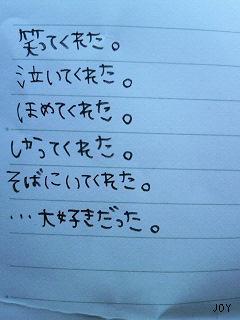 笑ってくれた。
泣いてくれた。
ほめてくれた。
しかってくれた。
そばにいてくれた。
…大好きだった。
JOY